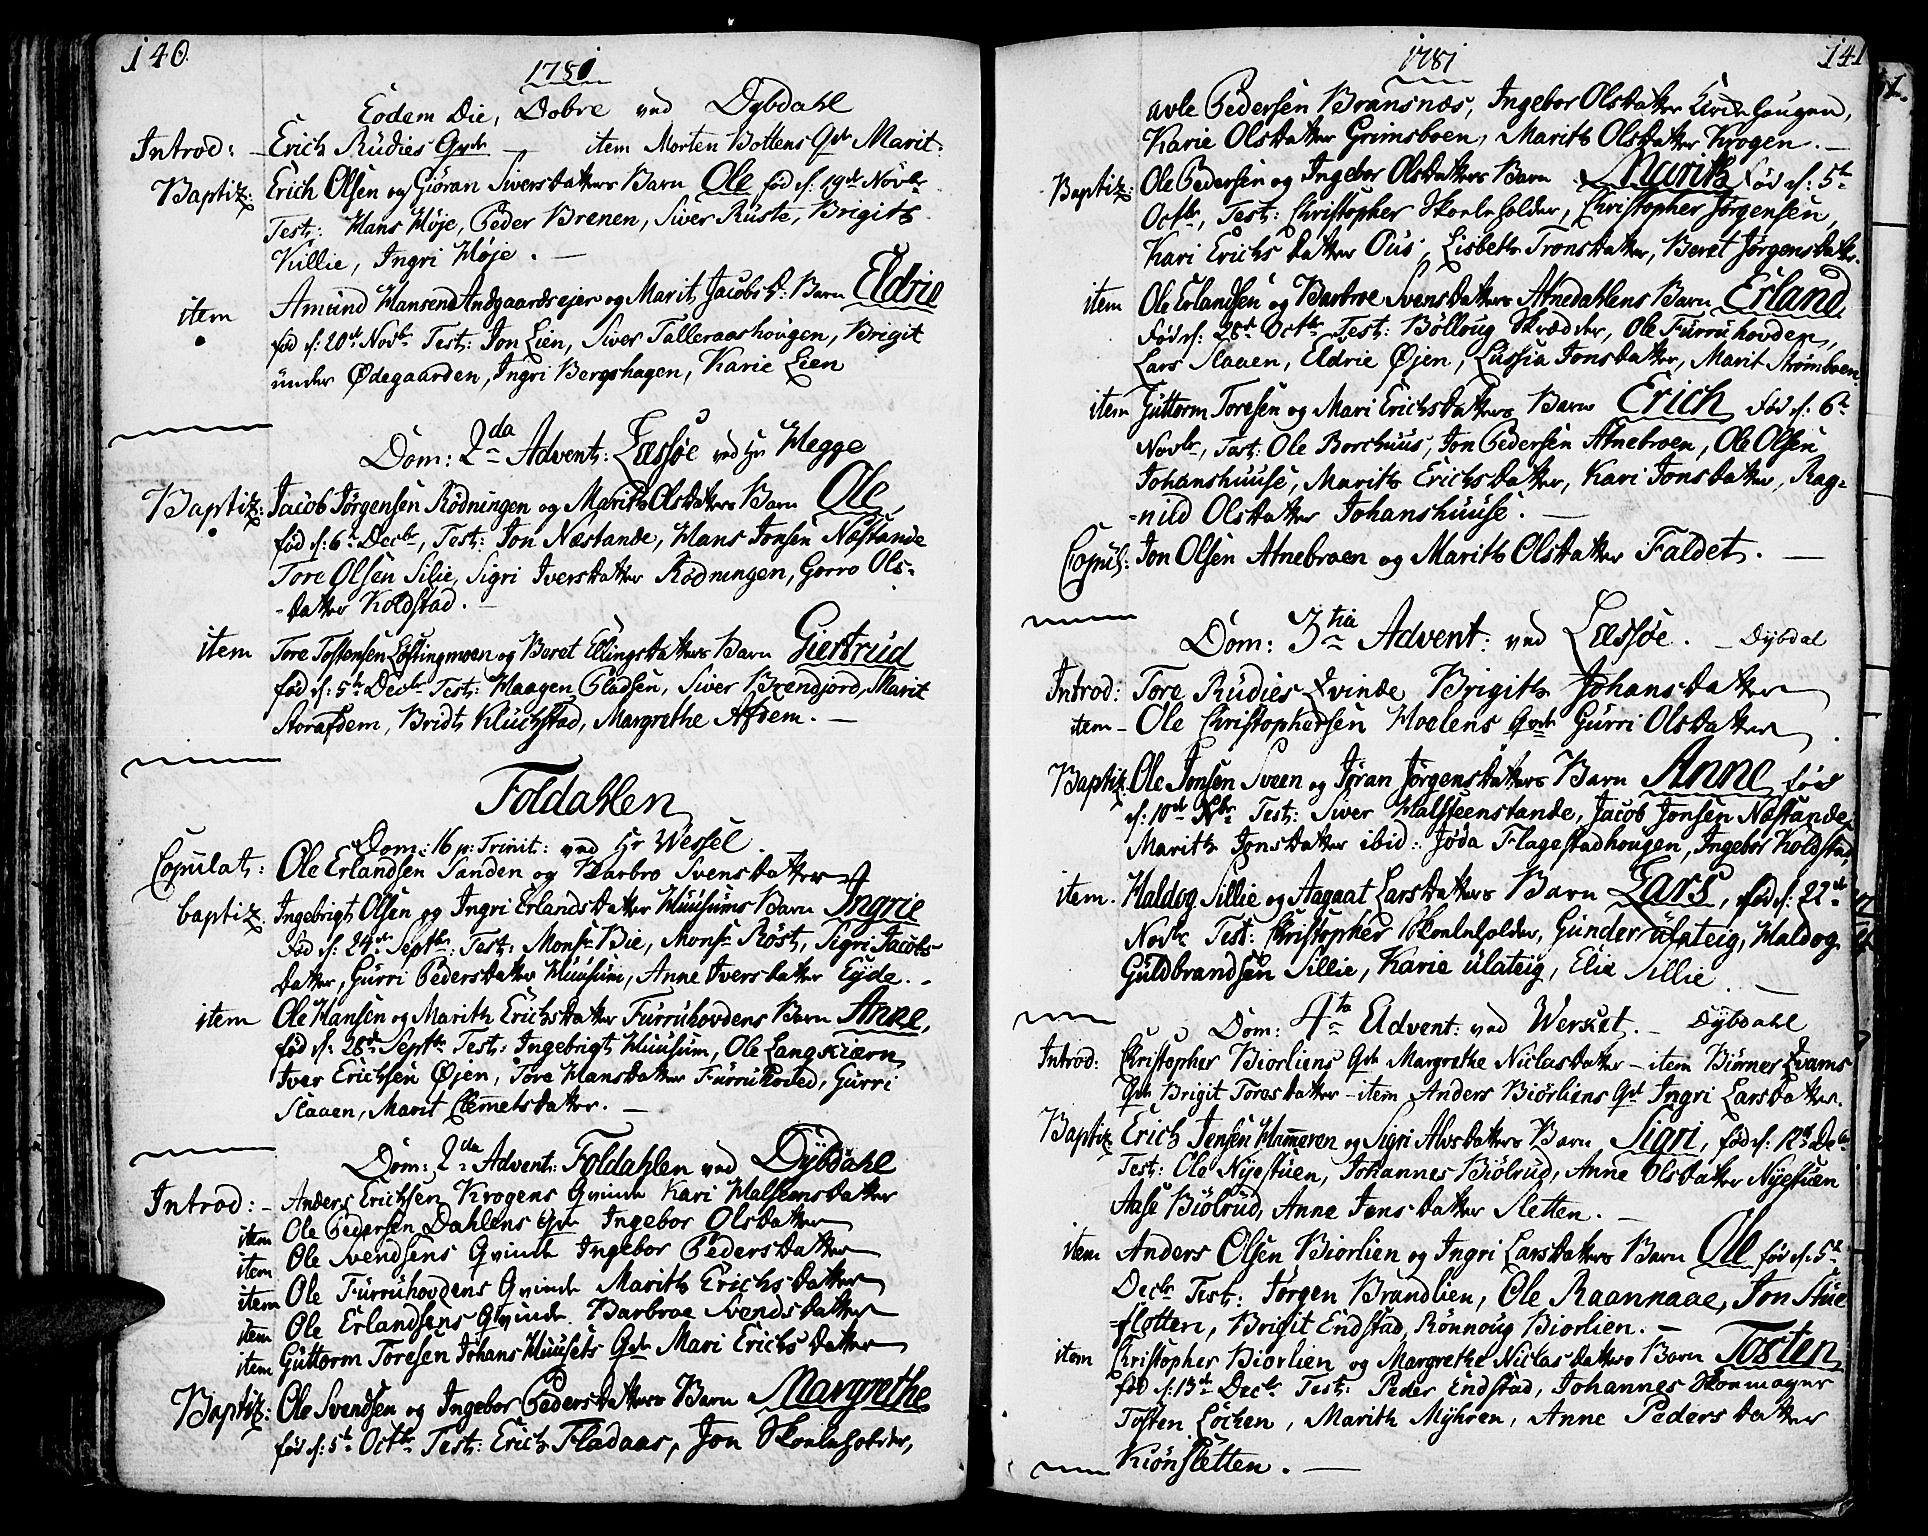 140
1781
Eodem Die, Dobre ved Dybdahl
Introd: – Erich Rudies Qvde – item Morten Bottens Qvd Marit:
Baptiz: Erich Olsen og Giøran Siversdatters Barn Ole fød d: 19de Novbr
Test: Hans Høje, Peder Brenen, Siver Ruste, Brigith
Killie, Ingri Høje. –
item Amund Hansens Andgaardsejer og Marit Jacobs D: Barn Eldrie
fød d: 20de Novbr Test: Jon Lien, Siver Talleraashougen, Brigit
under Ødegaarden, Ingri Bergshagen, Karie Lien
Dom: 2da Advent: Lessøe ved Hr Hegge
Baptiz: Jacob Jørgensen Rødningen og Marith Olsdatters Barn Ole,
fød d: 6te Decbr, Test: Jon Næstande, Hans Jonsen Næstande
Tore Olsen Silie, Sigri Iversdatter Rødningen, Gorro Ols-
-datter Koldstad. –
item Tore Tostensen Løstingmoen og Beret Ellingsdatters Barn Giertrud
fød d: 5te Decbr Test: Haagen Pladsen, Siver Brendjord, Marit
Storafdem, Bridt Kluchstad, Margrethe Afdem. –
Foldahlen
Dom: 16 p: Trinit: ved Hr Wessel.
Copulat: Ole Erlandsen Sanden og Barbro Svensdatter
baptiz: Ingebrigt Olsen og Ingri Erlandsdatter Huusums Barn Ingrie
fød d: 24de Septbr: Test: Monsr Bie, Monsr Røst, Sigri Jacobs
datter, Gurri Pedersdatter Huusum, Anne Iversdatter Eyde. –
item Ole Hansen og Marith Erichsdatter Furruhovdens Barn Anne,
fød d: 28de Septbr Test: Ingebrigt Huusum, Ole Langkiærn
Iver Erichsen Øjen, Tore Hansdatter Furruhoved, Gurri
Slaaen, Marit Clemetsdatter. –
Dom: 2da Advent: Foldahlen ved Dybdahl
Introd: – Anders Erichsen Krogens Qvinde Kari Halstensdatter
item Ole Pedersen Dahlens Qvde Ingebor Olsdatter
item Ole Svendsens Qvinde Ingebor Pedersdatter
item Ole Furruhovdens Qvinde Marith Erichsdatter
item Ole Erlandsens Qvinde Barbroe Svendsdatter
item Guttorm Toresen Johans Huusets Qvde Mari Erichsdatter
Baptiz: Ole Svendsen og Ingebor Pedersdatters Barn Margrethe
fød d: 5te Octbr Test: Erich Fladaas, Jon Skoeleholder,
1781
141
avle Pedersen Bransnæs, Ingebor Olsdatter Kirchehaugen,
Karie Olsdatter Grimsboen, Marith Olsdatter Krogen. –
Baptiz: Ole Pedersen og Ingebor Olsdatters Barn Marith fød d: 5te
Octbr, Test: Christopher Skoeleholder, Christopher Jørgensen,
Kari Erichsdatter Ous, Lisbeth Tronsdatter, Beret Jørgensdatter.
item Ole Erlandsen og Barbroe Svensdatters Atnedahlens Barn Erland,
fød d: 28de Octbr Test: Bølloug Skrædder, Ole Furruhovden,
Lars Slaaen, Eldrie Øjen, Lussia Jonsdatter, Marit Strømboen
item Guttorm Toresen og Mari Erichsdatters Barn Erich, fød d: 6te
Novbr, Test: Ole Borchuus, Jon Pedersen Atnebroen, Ole Olsen
Johanshuuse, Marith Erichsdatter, Kari Jonsdatter, Rag-
-nild Olsdatter Johanshuuse. –
Copul: Jon Olsen Atnebroen og Marith Olsdatter Faldet. –
Dom: 3tia Advent: ved Lessøe. – Dybdal
Introd: Tore Rudies Qvinde Brigith Johansdatter
item – Ole Christophersen Hoelens Qvde Gurri Olsdatter
Baptiz: Ole Jonsen Sveen og Jøran Jørgensdatters Barn Anne fød
d: 10de Xbr Test: Siver Halsteenstande, Jacob Jonsen Næstande
Marith Jonsdatter ibid: Jøda Flagestadhougen, Ingebor Koldstad
item. Haldog Sillie og Aagaat Larsdatters Barn Lars, fød d: 22de
Novbr Test: Christopher Skoeleholder, Gunder ulateig, Haldog
Guldbrandsen Sillie, Karie ulateig, Elie Sillie. –
Dom: 4ta Advent: ved Werket. – Dybdahl
Introd: Christopher Biorliens Qvde Margrethe Niclasdatter – item Biørner Qvams
Qvde Brigit Toresdatter – item Anders Biørliens Qvd Ingri Larsdatter.
Baptiz Erich Jensen Hameren og Sigri Alvsdatters Barn Sigri, fød d: 12de Decbr
Test: Ole Nyestuen, Johannes Biølrud, Anne Olsdatter Nyestuen
Aase Biølrud, Anne Jensdatter Sletten. –
item Anders Olsen Biorlien og Ingri Larsdatters Barn Ole fød d: 5te
Decbr Test: Jørgen Brandlien, Ole Raannaae, Jon Stue
flotten, Brigit Endstad, Rønnoug Biorlien. –
item Christopher Biorlien og Margrethe Niclasdatters Barn Tosten
fød d: 13de Decbr Test: Peder Endstad, Johannes Skoemager
Tosten Løchen, Marith Myhren, Anne Pedersdatter
Kiønsletten. –